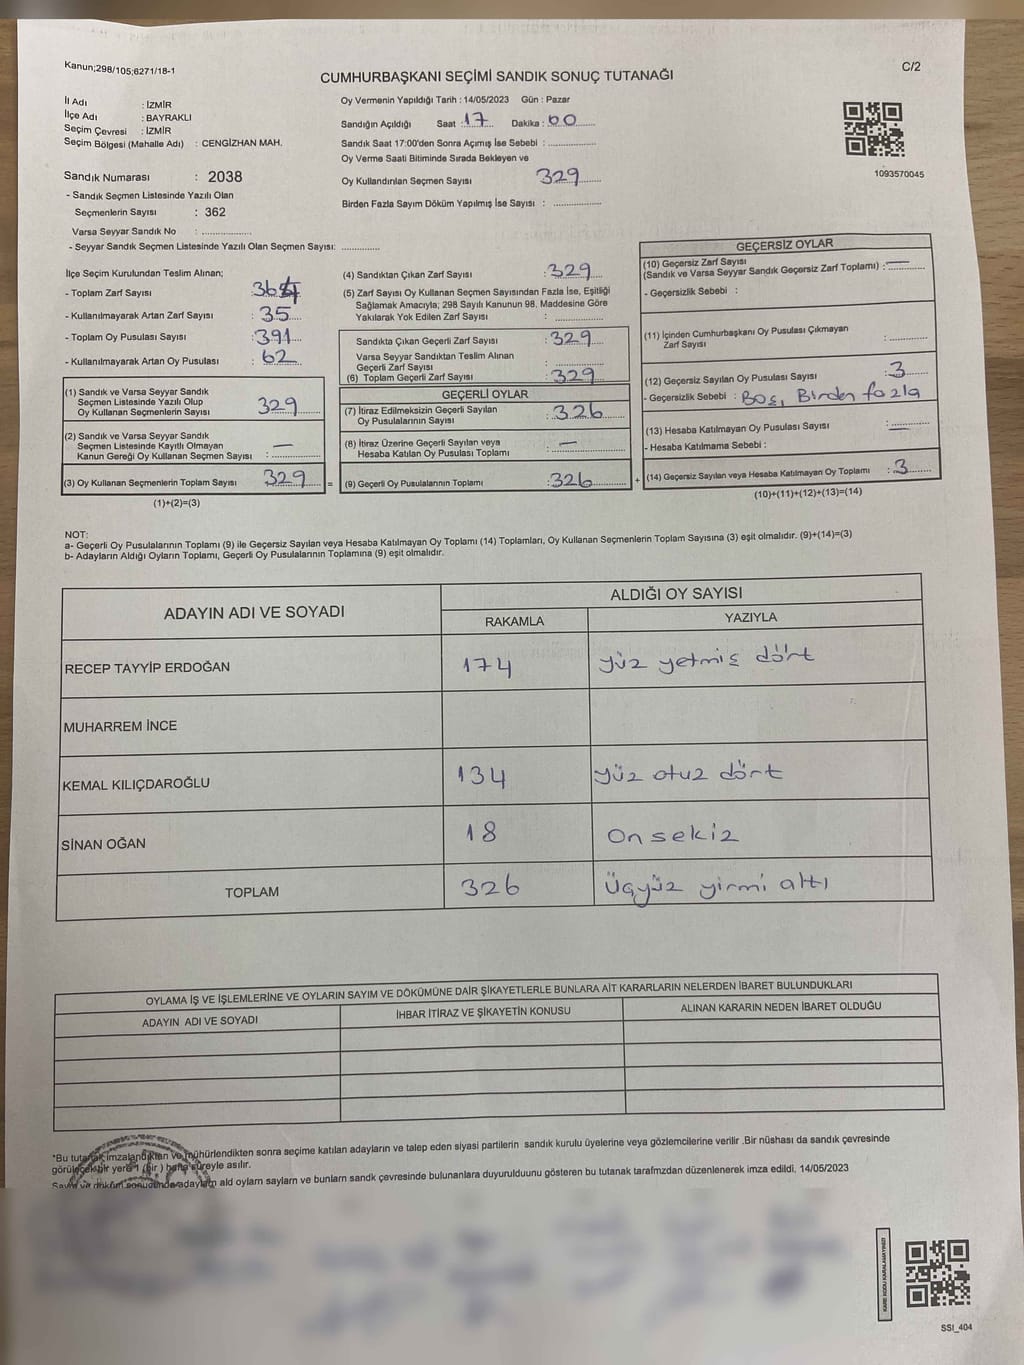 Kanun;298/105;6271/18-1
C/2
CUMHURBAŞKANI SEÇİMİ SANDIK SONUÇ TUTANAĞI
İl Adı : İZMİR
İlçe Adı : BAYRAKLI
Seçim Çevresi : İZMİR
Seçim Bölgesi (Mahalle Adı) : CENGİZHAN MAH.
Oy Vermenin Yapıldığı Tarih : 14/05/2023 Gün : Pazar
Sandığın Açıldığı Saat : 17 Dakika : 00
Sandık Saat 17:00'den Sonra Açımış İse Sebebi :
Oy Verme Saati Bitiminde Sırada Bekleyen ve
Oy Kullandırılan Seçmen Sayısı 329
Birden Fazla Sayım Döküm Yapılmış İse Sayısı :
1093570045
Sandık Numarası : 2038
- Sandık Seçmen Listesinde Yazılı Olan
Seçmenlerin Sayısı : 362
Varsa Seyyar Sandık No :
- Seyyar Sandık Seçmen Listesinde Yazılı Olan Seçmen Sayısı:
İlçe Seçim Kurulundan Teslim Alınan;
- Toplam Zarf Sayısı : 364
- Kullanılmayarak Artan Zarf Sayısı : 35
- Toplam Oy Pusulası Sayısı : 391
- Kullanılmayarak Artan Oy Pusulası : 62
(1) Sandık ve Varsa Seyyar Sandık
Seçmen Listesinde Yazılı Olup
Oy Kullanan Seçmenlerin Sayısı : 329
(2) Sandık ve Varsa Seyyar Sandık
Seçmen Listesinde Kayıtlı Olmayan
Kanun Gereği Oy Kullanan Seçmen Sayısı : —
(3) Oy Kullanan Seçmenlerin Toplam Sayısı 329
(1)+(2)=(3)
=
(4) Sandıktan Çıkan Zarf Sayısı : 329
(5) Zarf Sayısı Oy Kullanan Seçmen Sayısından Fazla İse, Eşitliği
Sağlamak Amacıyla; 298 Sayılı Kanunun 98. Maddesine Göre
Yakılarak Yok Edilen Zarf Sayısı :
Sandıkta Çıkan Geçerli Zarf Sayısı : 329
Varsa Seyyar Sandıktan Teslim Alınan
Geçerli Zarf Sayısı :
(6) Toplam Geçerli Zarf Sayısı : 329
GEÇERLİ OYLAR
(7) İtiraz Edilmeksizin Geçerli Sayılan
Oy Pusulalarının Sayısı : 326
(8) İtiraz Üzerine Geçerli Sayılan veya
Hesaba Katılan Oy Pusulası Toplamı : —
(9) Geçerli Oy Pusulalarının Toplamı : 326
+
GEÇERSİZ OYLAR
(10) Geçersiz Zarf Sayısı
(Sandık ve Varsa Seyyar Sandık Geçersiz Zarf Toplamı) : —
- Geçersizlik Sebebi :
(11) İçinden Cumhurbaşkanı Oy Pusulası Çıkmayan
Zarf Sayısı :
(12) Geçersiz Sayılan Oy Pusulası Sayısı : 3
- Geçersizlik Sebebi : Boş, Birden fazla
(13) Hesaba Katılmayan Oy Pusulası Sayısı : —
- Hesaba Katılmama Sebebi :
(14) Geçersiz Sayılan veya Hesaba Katılmayan Oy Toplamı : 3
(10)+(11)+(12)+(13)=(14)
NOT:
a- Geçerli Oy Pusulalarının Toplamı (9) ile Geçersiz Sayılan veya Hesaba Katılmayan Oy Toplamı (14) Toplamları, Oy Kullanan Seçmenlerin Toplam Sayısına (3) eşit olmalıdır. (9)+(14)=(3)
b- Adayların Aldığı Oyların Toplamı, Geçerli Oy Pusulalarının Toplamına (9) eşit olmalıdır.
ADAYIN ADI VE SOYADI
ALDIĞI OY SAYISI
RAKAMLA YAZIYLA
RECEP TAYYİP ERDOĞAN 174 yüz yetmiş dört
MUHARREM İNCE
KEMAL KILIÇDAROĞLU 134 yüz otuz dört
SİNAN OĞAN 18 On sekiz
TOPLAM 326 Üçyüz yirmi altı
OYLAMA İŞ VE İŞLEMLERİNE VE OYLARIN SAYIM VE DÖKÜMÜNE DAİR ŞİKAYETLERLE BUNLARA AİT KARARLARIN NELERDEN İBARET BULUNDUKLARI
ADAYIN ADI VE SOYADI İHBAR İTİRAZ VE ŞİKAYETİN KONUSU ALINAN KARARIN NEDEN İBARET OLDUĞU
*Bu tutanak imzalandıktan ve mühürlendikten sonra seçime katılan adayların ve talep eden siyasi partilerin sandık kurulu üyelerine veya gözlemcilerine verilir .Bir nüshası da sandık çevresinde
görülecek bir yere 1 (bir ) hafta süreyle asılır.
Sayım ve döküm sonucunda adayların ald oyların sayları ve bunların sandk çevresinde bulunanlara duyurulduunu gösteren bu tutanak tarafmzdan düzenlenerek imza edildi. 14/05/2023
KARE KODU KARALAMAYINIZ!
SSI_404